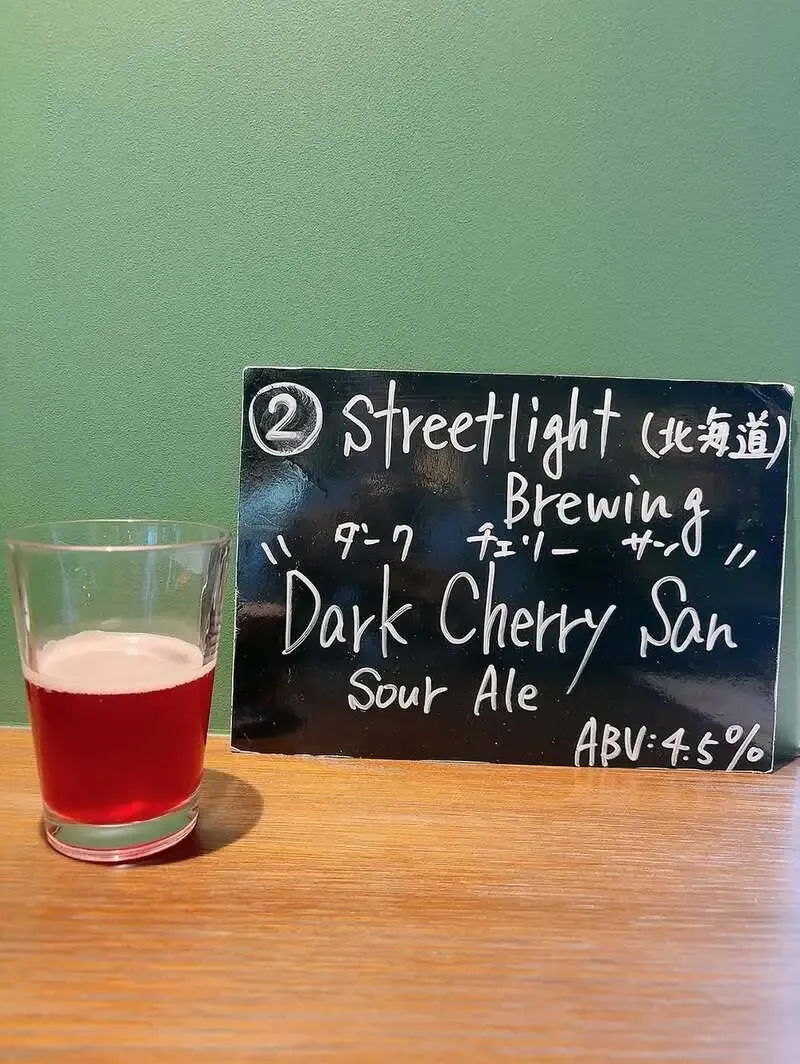 ② Streetlight (北海道)
Brewing
" ダーク チェリー サン "
Dark Cherry San
Sour Ale
ABV:4.5%